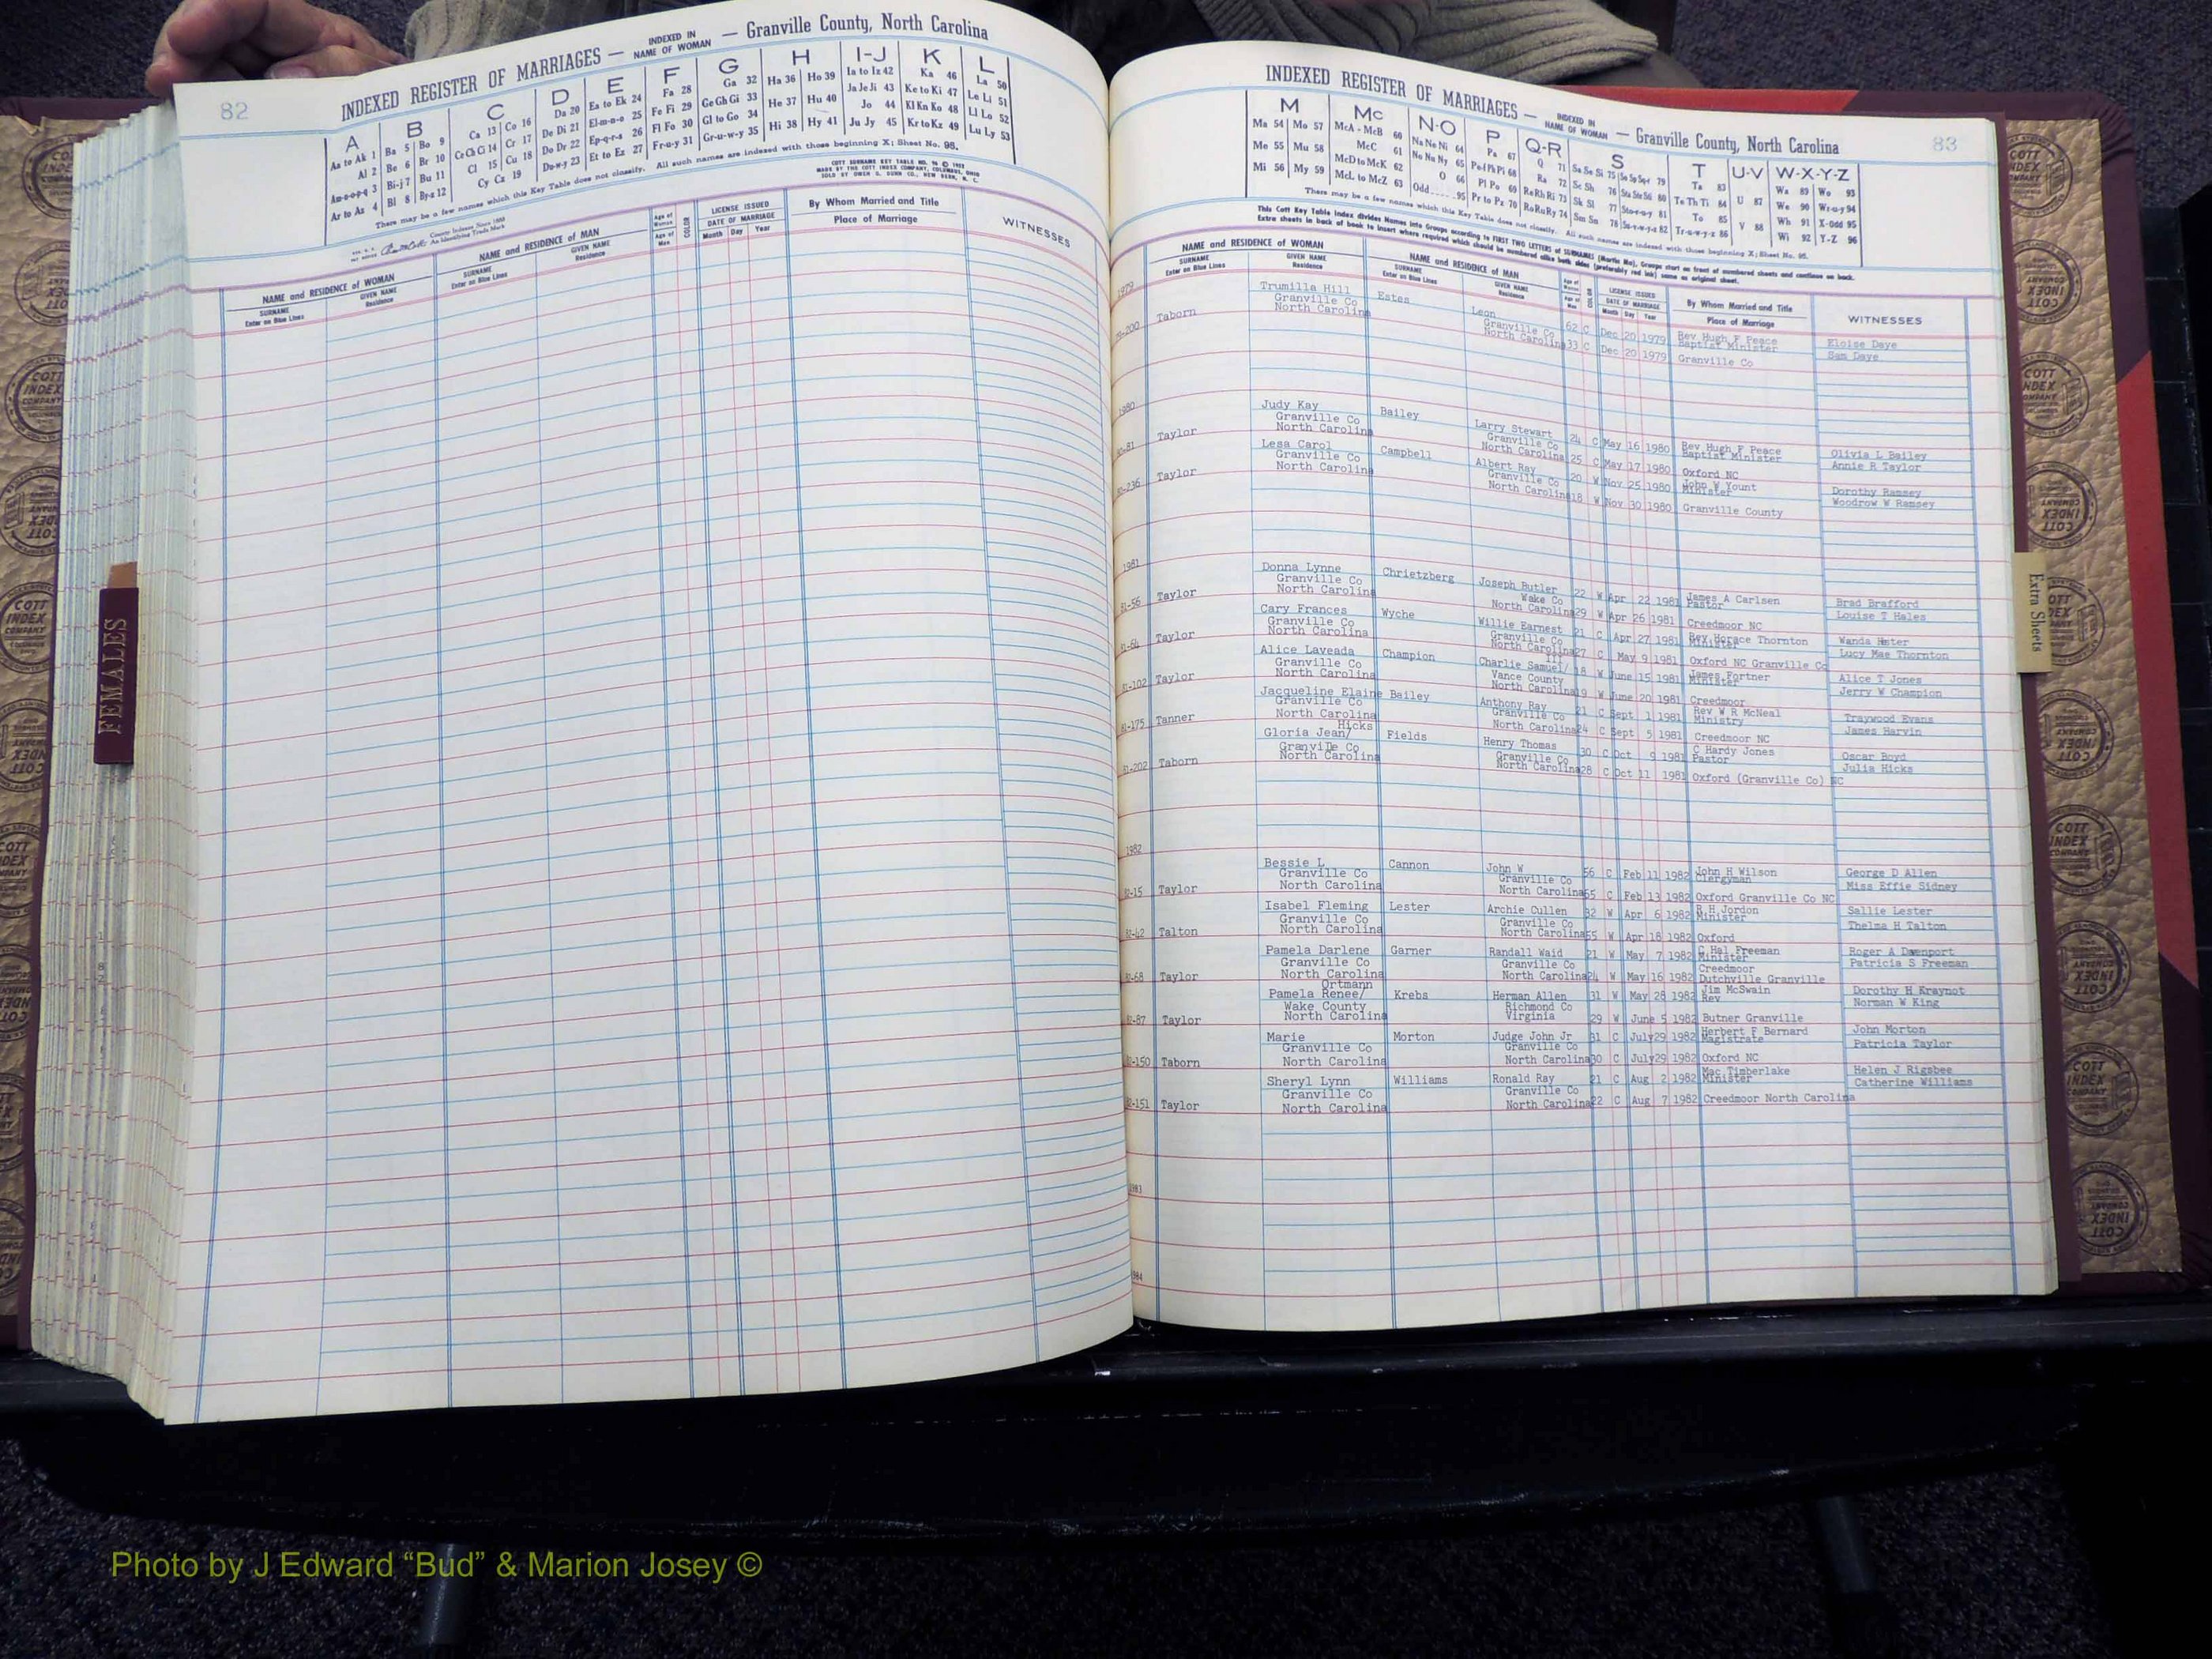 82
INDEXED REGISTER OF MARRIAGES — INDEXED IN NAME OF WOMAN — Granville County, North Carolina
A B C D E F G H I-J K L
Aa to Ak 1 Ba 5 Bo 9 Ca 13 Co 16 Da 20 Ea to Ek 24 Fa 28 Ga 32 Ha 36 Ho 39 Ia to Iz 42 Ka 46 La 50
Al 2 Be 6 Br 10 Ce Ch Ci 14 Cr 17 De Di 21 El-m-n-o 25 Fe Fi 29 Ge Gh Gi 33 He 37 Hu 40 Ja Je Ji 43 Ke to Ki 47 Le Li 51
Am-n-o-p-q 3 Bi-j 7 Bu 11 Cl 15 Cu 18 Do Dr 22 Ep-q-r-s 26 Fl Fo 30 Gl to Go 34 Hi 38 Hy 41 Jo 44 Kl Kn Ko 48 Ll Lo 52
Ar to Az 4 Bl 8 By-z 12 Cy Cz 19 Du-w-y 23 Et to Ez 27 Fr-u-y 31 Gr-u-w-y 35 Ju Jy 45 Kr to Kz 49 Lu Ly 53
There may be a few names which this Key Table does not classify. All such names are indexed with those beginning X; Sheet No. 95.
County Indexes Since 1888
An Identifying Trade Mark
NAME and RESIDENCE of WOMAN
SURNAME
Enter on Blue Lines
GIVEN NAME
Residence
NAME and RESIDENCE of MAN
SURNAME
Enter on Blue Lines
GIVEN NAME
Residence
Age of Woman
Age of Man
COLOR
LICENSE ISSUED
DATE OF MARRIAGE
Month Day Year
By Whom Married and Title
Place of Marriage
WITNESSES
FEMALES
83
INDEXED REGISTER OF MARRIAGES — INDEXED IN NAME OF WOMAN — Granville County, North Carolina
M Mc N-O P Q-R S T U-V W-X-Y-Z
Ma 54 Mo 57 McA - McB 60 Na Ne Ni 64 Pa 67 Q 71 Sa Se Si 75 Ta 83 U 87 Wa 89 Wo 93
Me 55 Mu 58 McC 61 No Nu Ny 65 Pe-f Ph Pi 68 Ra 72 Sc Sh 76 Te Th Ti 84 V 88 We 90 Wr-u-y 94
Mi 56 My 59 McD to McK 62 O 66 Pl Po 69 Re Rh Ri 73 Sk Sl 77 To 85 Wh 91 X-odd 95
McL to McZ 63 Odd 95 Pr to Pz 70 Ro Ru Ry 74 Sm Sn 78 Tr-u-w-y-z 86 Wi 92 Y-Z 96
There may be a few names which this Key Table does not classify. All such names are indexed with those beginning X; Sheet No. 95.
This Cott Key Table Index divides Names into Groups according to FIRST TWO LETTERS of SURNAMES
NAME and RESIDENCE of WOMAN
SURNAME
Enter on Blue Lines
GIVEN NAME
Residence
NAME and RESIDENCE of MAN
SURNAME
Enter on Blue Lines
GIVEN NAME
Residence
LICENSE ISSUED
DATE OF MARRIAGE
Month Day Year
By Whom Married and Title
Place of Marriage
WITNESSES
1979
Trumilla Hill Estes Leon 62 C Dec 20 1979 Rev Hugh F Peace Eloise Daye
Granville Co Granville Co Baptist Minister Sam Daye
Taborn North Carolina North Carolina 33 C Dec 20 1979 Granville Co
1980
Judy Kay Bailey Larry Stewart 24 C May 16 1980 Rev Hugh F Peace Olivia L Bailey
Granville Co Granville Co Baptist Minister Annie R Taylor
80-81 Taylor North Carolina North Carolina 25 C May 17 1980 Oxford NC
Lesa Carol Campbell Albert Ray 20 W Nov 25 1980 John W Yount Dorothy Ramsey
Granville Co Granville Co Minister Woodrow W Ramsey
80-236 Taylor North Carolina North Carolina 18 W Nov 30 1980 Granville County
1981
Donna Lynne Chrietzberg Joseph Butler 22 W Apr 22 1981 James A Carlsen Brad Brafford
Granville Co Wake Co Pastor Louise T Hales
81-56 Taylor North Carolina North Carolina 29 W Apr 26 1981 Creedmoor NC
Cary Frances Wyche Willie Earnest 21 C Apr 27 1981 Rev Horace Thornton Wanda Hester
Granville Co Granville Co Minister Lucy Mae Thornton
81-64 Taylor North Carolina North Carolina 27 C May 9 1981 Oxford NC Granville Co
III
Alice Laveada Champion Charlie Samuel/ 18 W June 15 1981 James Fortner Alice T Jones
Granville Co Vance County Minister Jerry W Champion
81-102 Taylor North Carolina North Carolina 19 W June 20 1981 Creedmoor
Jacqueline Elaine Bailey Anthony Ray 21 C Sept 1 1981 Rev W R McNeal Traywood Evans
Granville Co Granville Co Ministry James Harvin
81-175 Tanner North Carolina North Carolina 24 C Sept 5 1981 Creedmoor NC
Hicks
Gloria Jean/ Fields Henry Thomas 30 C Oct 9 1981 C Hardy Jones Oscar Boyd
Granville Co Granville Co Pastor Julia Hicks
81-202 Taborn North Carolina North Carolina 28 C Oct 11 1981 Oxford (Granville Co) NC
1982
Bessie L Cannon John W 56 C Feb 11 1982 John H Wilson George D Allen
Granville Co Granville Co Clergyman Miss Effie Sidney
82-15 Taylor North Carolina North Carolina 65 C Feb 13 1982 Oxford Granville Co NC
Isabel Fleming Lester Archie Cullen 32 W Apr 6 1982 R H Jordon Sallie Lester
Granville Co Granville Co Minister Thelma H Talton
82-42 Talton North Carolina North Carolina 55 W Apr 18 1982 Oxford
Pamela Darlene Garner Randall Waid 21 W May 7 1982 C Hal Freeman Roger A Davenport
Granville Co Granville Co Minister Patricia S Freeman
Creedmoor
82-68 Taylor North Carolina North Carolina 24 W May 16 1982 Dutchville Granville
Ortmann
Pamela Renee/ Krebs Herman Allen 31 W May 28 1982 Jim McSwain Dorothy H Kraynot
Wake County Richmond Co Rev Norman W King
82-87 Taylor North Carolina Virginia 29 W June 5 1982 Butner Granville
Marie Morton Judge John Jr 31 C July 29 1982 Herbert F Bernard John Morton
Granville Co Granville Co Magistrate Patricia Taylor
82-150 Taborn North Carolina North Carolina 30 C July 29 1982 Oxford NC
Sheryl Lynn Williams Ronald Ray 21 C Aug 2 1982 Mac Timberlake Helen J Rigsbee
Granville Co Granville Co Minister Catherine Williams
82-151 Taylor North Carolina North Carolina 22 C Aug 7 1982 Creedmoor North Carolina
1983
1984
Extra Sheets
COTT INDEX COMPANY
Photo by J Edward “Bud” & Marion Josey ©